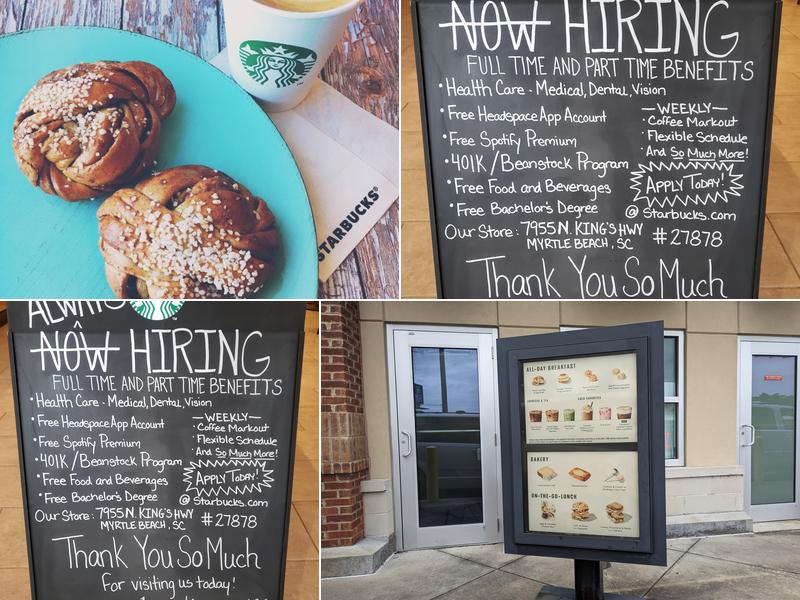 STARBUCKS®
NOW HIRING
FULL TIME AND PART TIME BENEFITS
• Health Care - Medical, Dental, Vision
• Free Headspace App Account
• Free Spotify Premium
• 401K/Beanstock Program
• Free Food and Beverages
• Free Bachelor's Degree
—WEEKLY—
• Coffee Markout
• Flexible Schedule
• And So Much More!
APPLY TODAY!
@ Starbucks.com
Our Store: 7955 N. KING'S HWY
MYRTLE BEACH, SC
#27878
Thank You So Much
ALWAYS
NOW HIRING
FULL TIME AND PART TIME BENEFITS
• Health Care - Medical, Dental, Vision
• Free Headspace App Account
• Free Spotify Premium
• 401K/Beanstock Program
• Free Food and Beverages
• Free Bachelor's Degree
—WEEKLY—
• Coffee Markout
• Flexible Schedule
• And So Much More!
APPLY TODAY!
@ Starbucks.com
Our Store: 7955 N. KING'S HWY
MYRTLE BEACH, SC
#27878
Thank You So Much
for visiting us today!
ALL-DAY BREAKFAST
ESPRESSO & TEA
COLD FAVORITES
BAKERY
ON-THE-GO-LUNCH